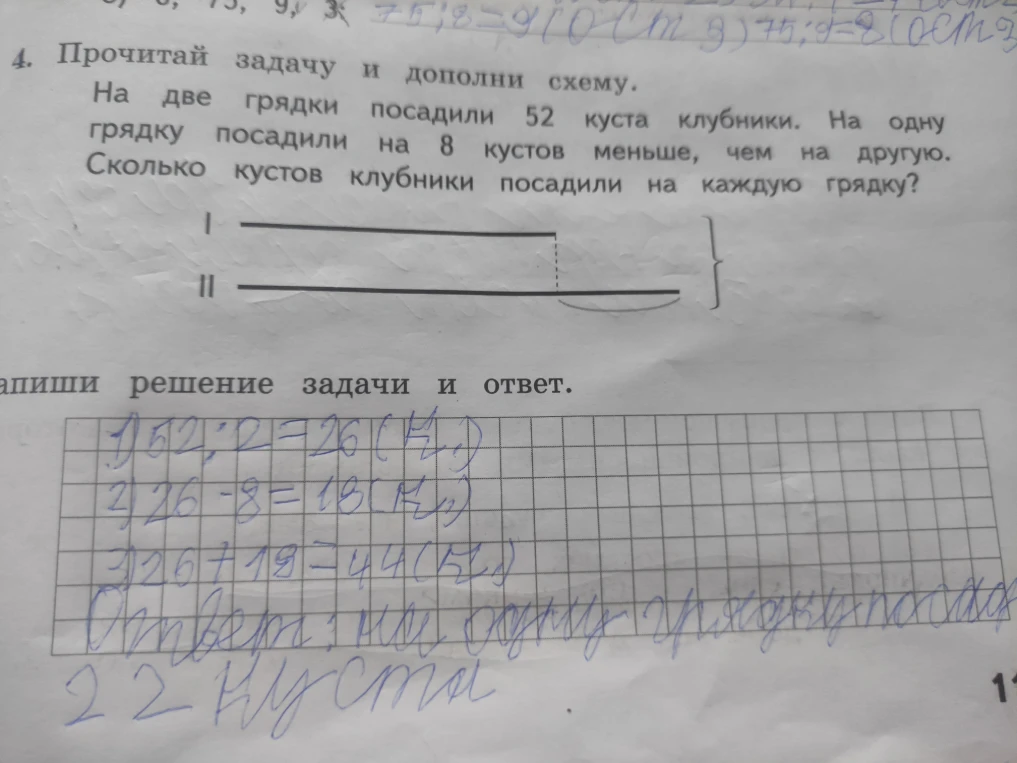 75, 9, 3, 75:8=9(ост 3) 75:9=8(ост 3
4. Прочитай задачу и дополни схему.
На две грядки посадили 52 куста клубники. На одну
грядку посадили на 8 кустов меньше, чем на другую.
Сколько кустов клубники посадили на каждую грядку?
I
II
апиши решение задачи и ответ.
1) 52:2=26(к.)
2) 26-8=18(к.)
3) 26+18=44(к.)
Ответ: на одну грядку посад
22 куста
11